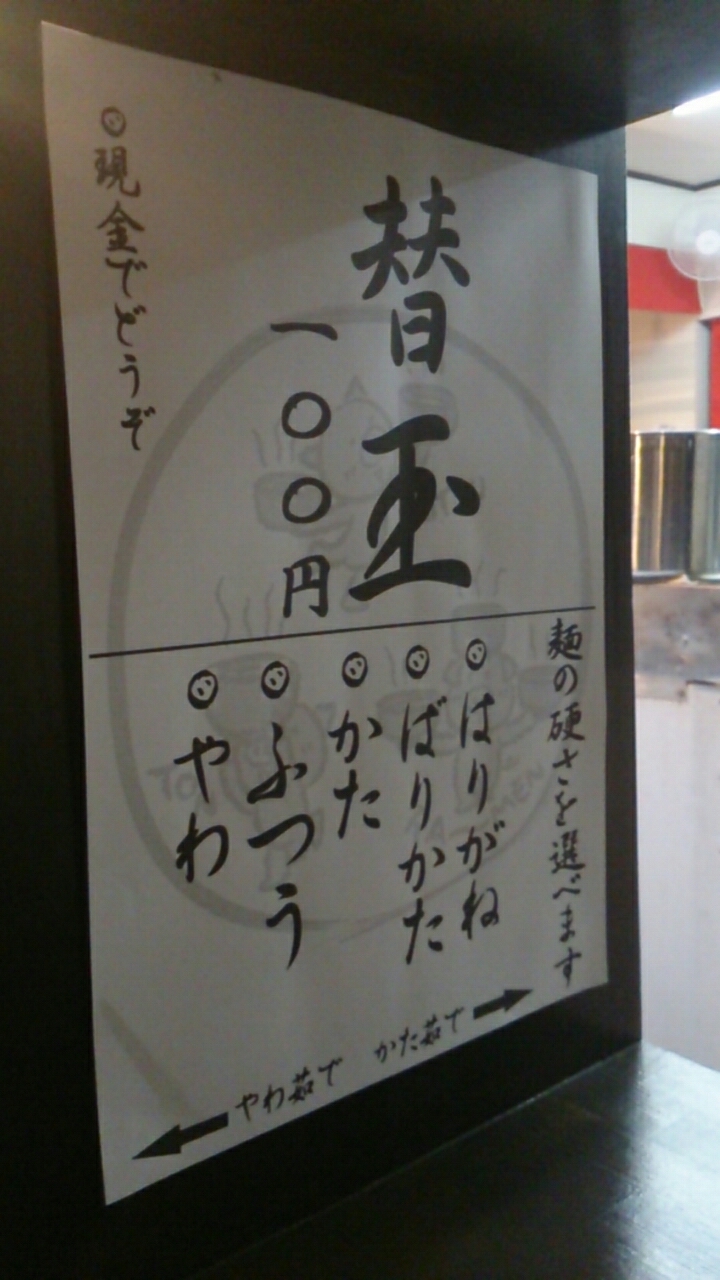 替玉
一〇〇円
現金でどうぞ
麺の硬さを選べます
はりがね
ばりかた
かた
ふつう
やわ
かた茹で →
← やわ茹で